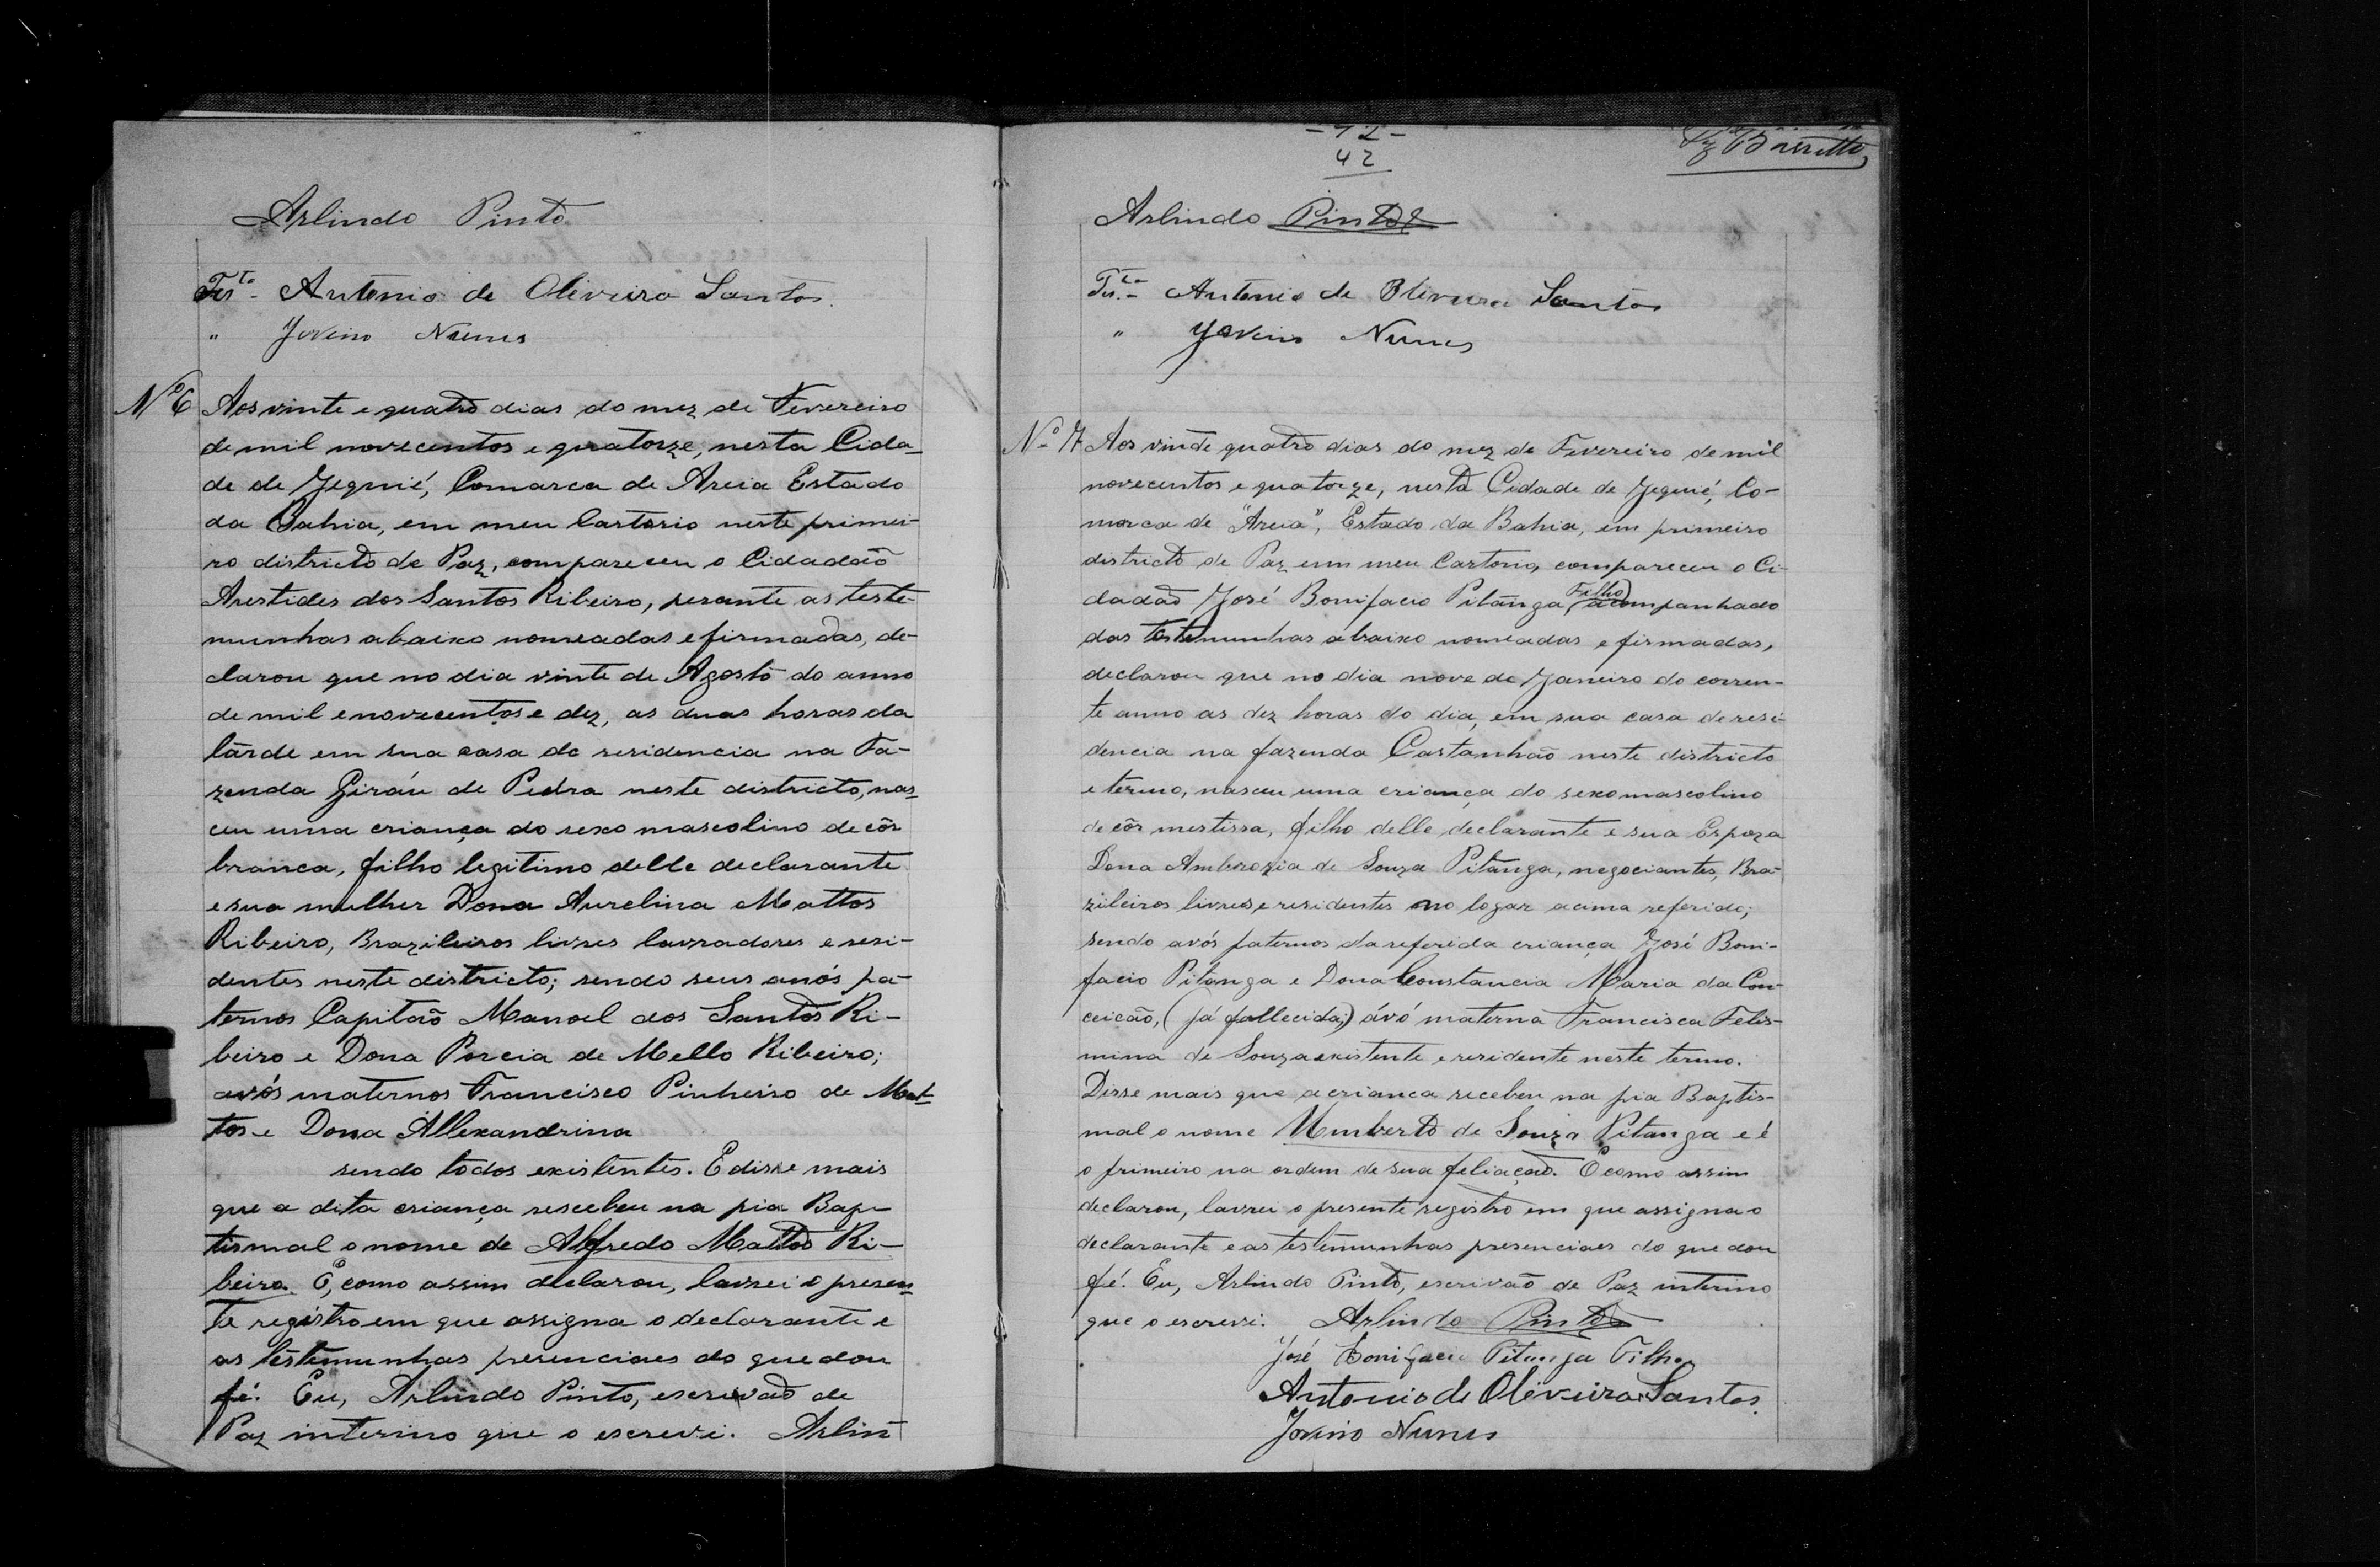 Arlindo Pinto
Tes.to - Antonio de Oliveira Santos.
" Jovino Nunes
Nº 6 Aos vinte e quatro dias do mez de Fevereiro
de mil novecentos e quatorze, nesta Cida-
de de Jequié, Comarca de Areia Estado
da Bahia, em meu Cartorio neste primei-
ro districto de Paz, compareceu o Cidadão
Arestides dos Santos Ribeiro, perante as teste-
munhas abaixo nomeadas e firmadas, de-
clarou que no dia vinte de Agosto do anno
de mil e novecentos e dez, as duas horas da
tarde em sua casa de residencia na Fa-
zenda Giráu de Pedra neste districto, nas-
ceu uma criança do sexo mascolino de côr
branca, filho legitimo delle declarante
e sua mulher Dona Aurelina Mattos
Ribeiro, Brazileiros livres lavradores e resi-
dentes neste districto; sendo seus avós pa-
ternos Capitão Manoel dos Santos Ri-
beiro e Dona Porcia de Mello Ribeiro;
avós maternos Francisco Pinheiro de Mat-
tos e Dona Allexandrina
sendo todos existentes. E disse mais
que a dita criança rescebeu na pia Bap-
tismal o nome de Alfredo Mattos Ri-
beiro. E, como assim declarou, lavrei o presen-
te registro em que assigna o declarante e
as testemunhas presenciaes do que dou
fé. Eu, Arlindo Pinto, escrivão de
Paz interino que o escrevi. Arlin
- 42 -
42
Barretto
Arlindo Pinto
Tes.to - Antonio de Oliveira Santos
" Jovino Nunes
Nº 7 Aos vinte quatro dias do mez de Fevereiro de mil
novecentos e quatorze, nesta Cidade de Jequié, Co-
marca de "Areia", Estado da Bahia, em primeiro
districto de Paz em meu Cartorio, compareceu o Ci-
dadão José Bonifacio Pitanga Filho, acompanhado
das testemunhas abaixo nomeadas e firmadas,
declarou que no dia nove de Janeiro do corren-
te anno as dez horas do dia, em sua casa de resi-
dencia na fazenda Castanhão neste districto
e termo, nasceu uma criança do sexo mascolino
de côr mestissa, filho delle declarante e sua Espoza
Dona Ambrozia de Souza Pitanga, negociantes, Bra-
zileiros livres e residentes no logar acima referido;
sendo avós paternos da referida criança José Boni-
facio Pitanga e Dona Constancia Maria da Con-
ceicão, (já fallecida;) ávó materna Francisca Felis-
mina de Souza existente e residente neste termo.
Disse mais que a crianca recebeu na pia Baptis-
mal o nome Umberto de Souza Pitanga e é
o primeiro na ordem de sua feliação. E como assim
declarou, lavrei o presente registro em que assigna o
declarante e as testemunhas presenciaes do que dou
fé. Eu, Arlindo Pinto, escrivão de Paz interino
que o escrevi. Arlindo Pinto
José Bonifacio Pitanga Filho
Antonio de Oliveira Santos
Jovino Nunes